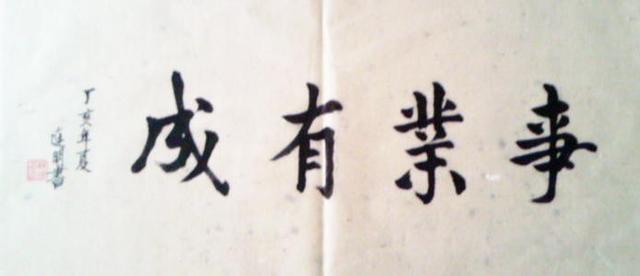 事業有成
丁亥年夏
書